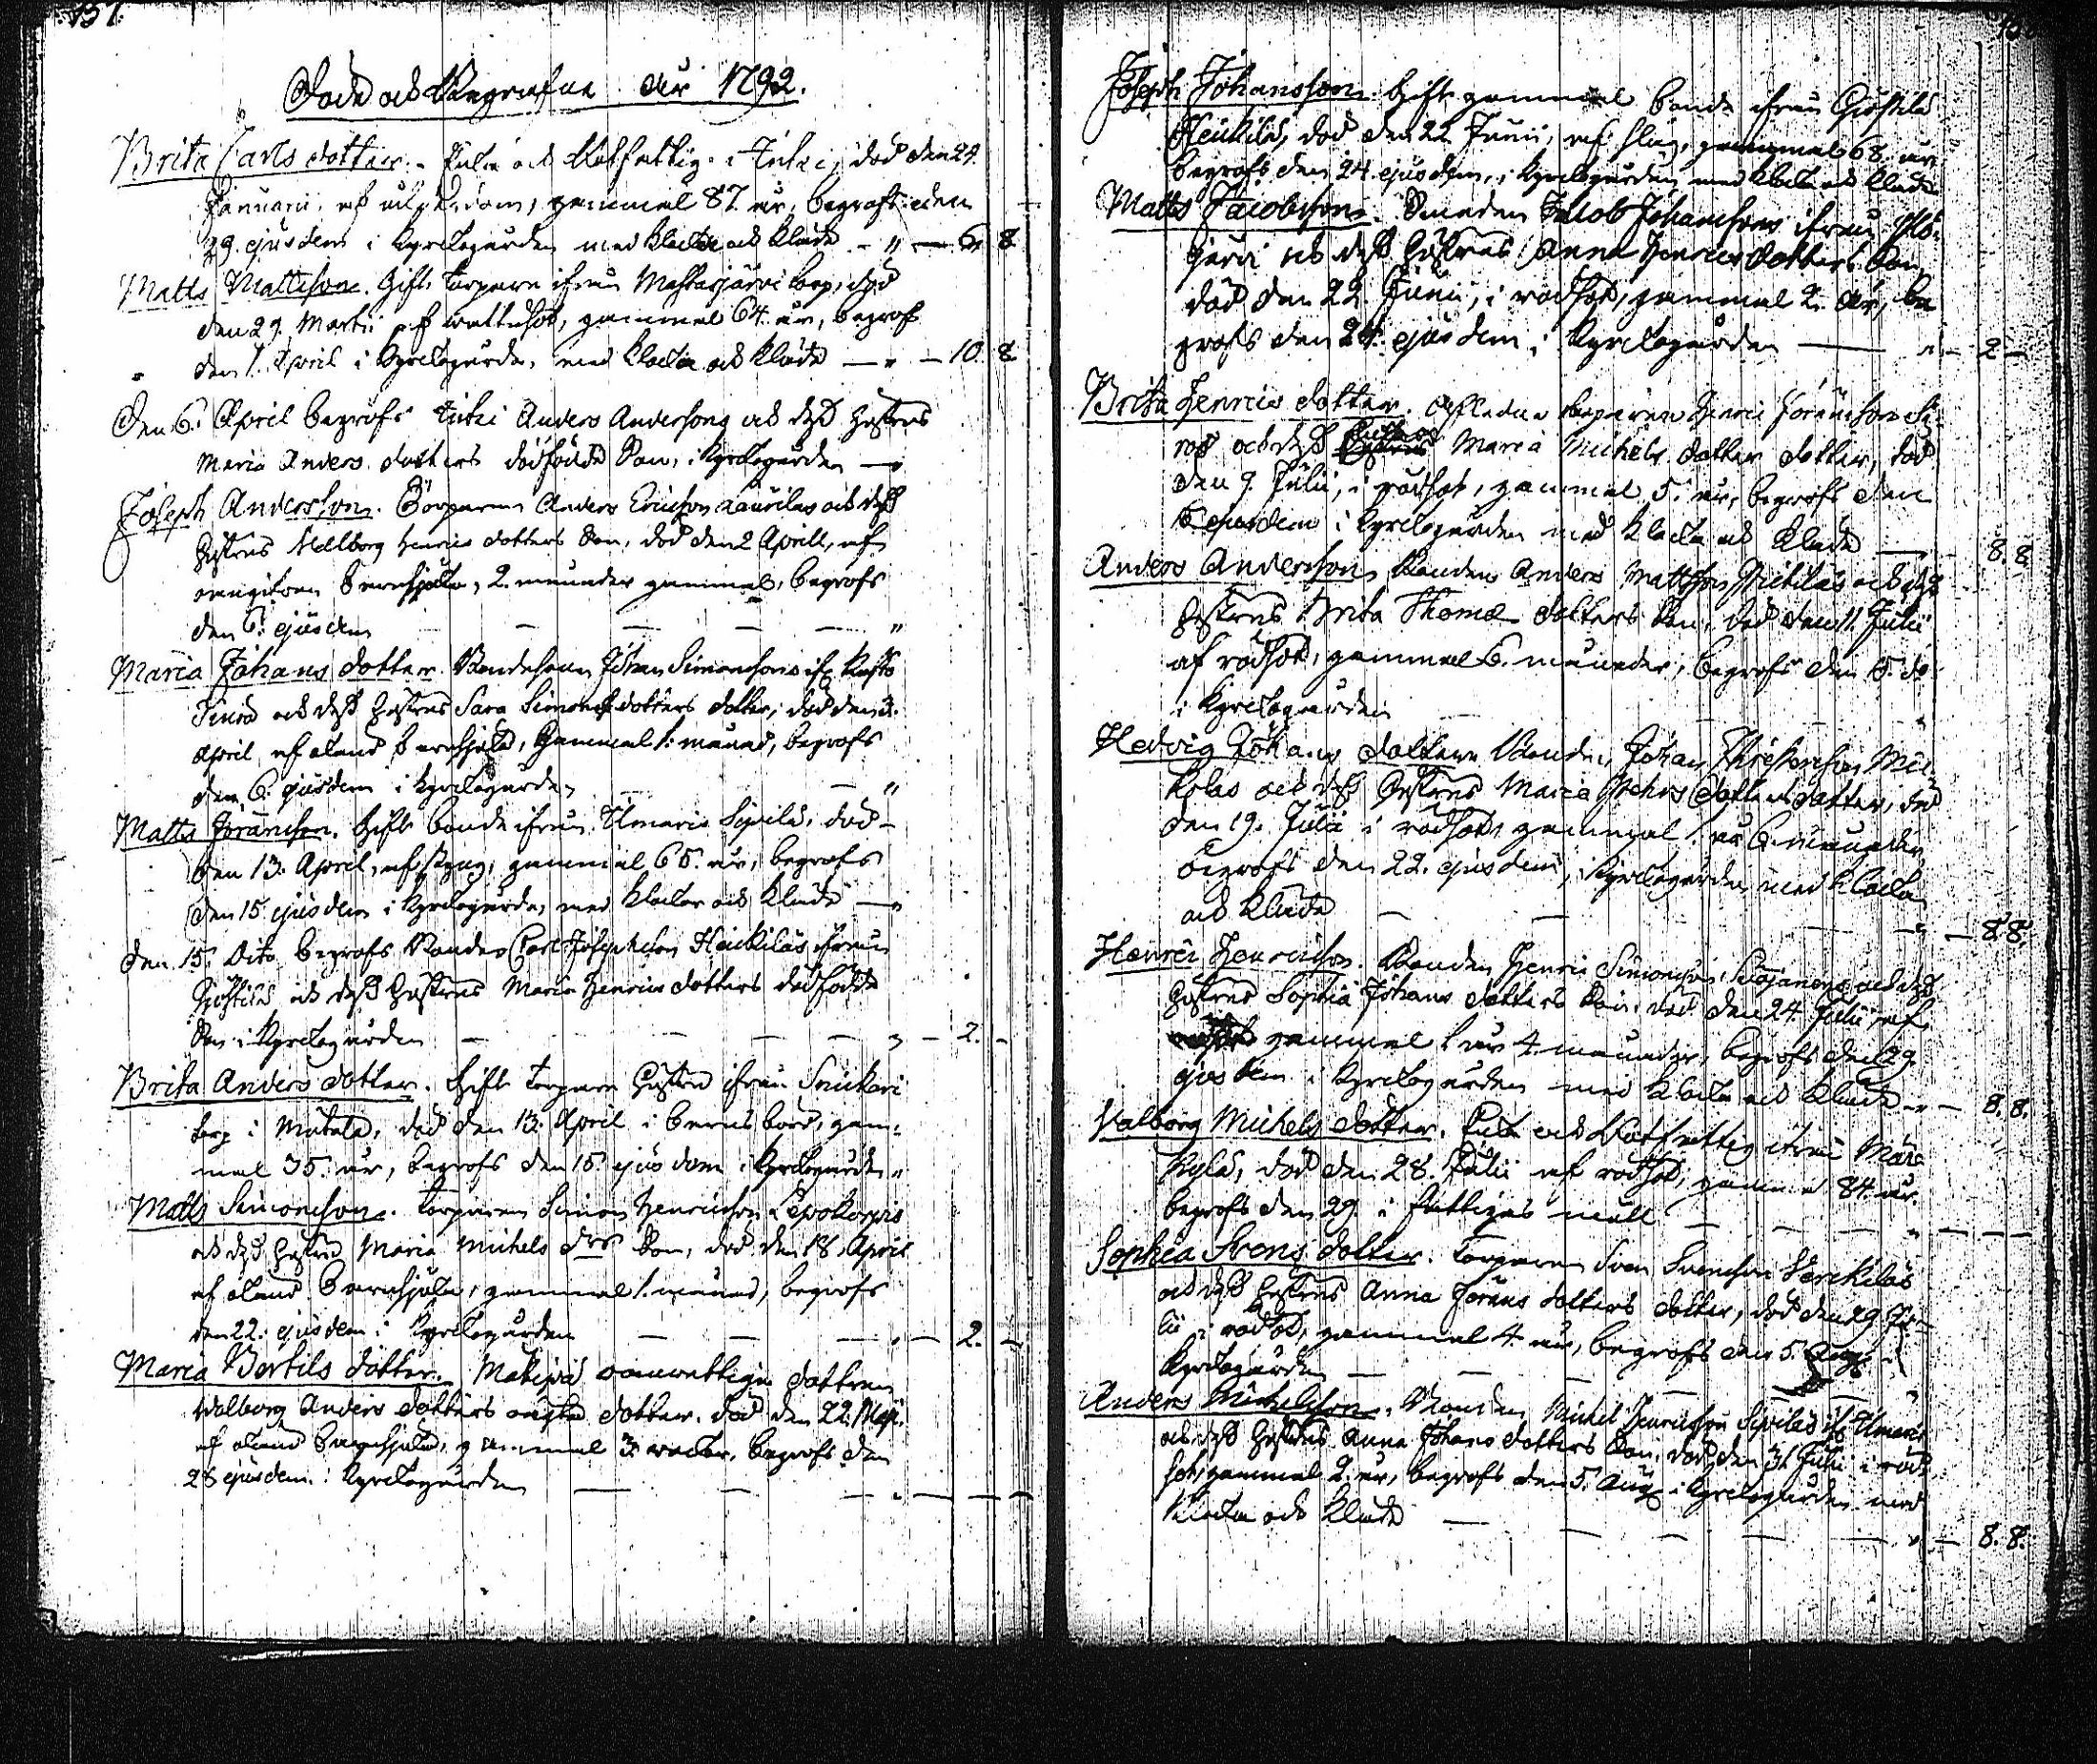 157.
Döde och Begrafne åhr 1792.
Brita Carls dotter. Enka och Utfattig i Jutri, död den 24.
Januarii, af ålderdom, gammal 87. år, begrofs den
29. ejusdem i Kyrckogården med klocka och kläde - " - 6. 8
Matts Mattsson. Gift Torpare ifrån Mustajärvi torp, död
den 29. Martii af wattusot, gammal 64. år, begrofs
den 1. April i Kyrckogården, med klocka och kläde - " - 10. 8
Den 6. April begrofs Anders Anderssons och dess Hustrus
Maria Anders dotters dödfödde Son, i Kyrckogården - "
Joseph Andersson. Torparen Anders Ericsson Laurilas och dess
Hustrus Wallborg Henrics dotters Son, död den 2 Aprill, af
barnsjuka, 2. månader gammal, begrofs
den 6. ejusdem - - - - "
Maria Johans dotter. Bondesonen Johan Simonssons if:
och dess Hustrus Sara Simons dotters dotter, död den 3.
April, af okänd barnsjuka, gammal 1. månad, begrofs
den 6. ejusdem i Kyrckogården - - "
Matts Göransson. Gift bonde ifrån Sipilä, död
den 13. April, af styng, gammal 65. år, begrofs
den 15. ejusdem i Kyrckogården, med klockor och kläde - "
Den 15. Dito begrofs Bonden Carl Josephsson Heickiläs ifrån
och dess Hustrus Maria Henrics dotters dödfödde
Son i Kyrckogården - - - - " - 2. -
Brita Anders dotter. Gift Torpare Hustru ifrån Snickari
torp i Mutala, död den 13. April i barns börd, gam-
mal 35. år, begrofs den 15. ejusdem i Kyrckogården "
Matts Simonsson. Torparen Simon Henricsson Lepokorpis
och dess Hustrus Maria Michels drs Son, död den 18. April
af okänd barnsjuka, gammal 1. månad, begrofs
den 22. ejusdem i Kyrckogården - - - " - 2. -
Maria Bertils dotter. dottren
Walborg Anders dotters oägta dotter, död den 22. Maji
af okänd barnsjuka, gammal 3. weckor, begrofs den
28 ejusdem i Kyrckogården - - - - - -
Joseph Johansson. Gift gammal bonde ifrån
Heickilä, död den 22 Junii, af slag, gammal 68. år,
begrofs den 24. ejusdem, i Kyrckogården med klocka och kläde
Matts Jacobsson. Smeden Jacob Johanssons ifrån Yli-
och dess Hustrus Anna Henrics dotters Son,
död den 22. Junii, i rödsot, gammal 2. år, be
grofs den 24. ejusdem i Kyrckogården - " - 2 -
Brita Henrics dotter. Afledne Torparen Henric Göransson
och dess Enka Maria Michels dotter dotter, död
den 9. Julii, i rödsot, gammal 5. år, begrofs den
ejusdem i Kyrckogården med klocka och kläde - 8. 8.
Anders Andersson, Bonden Anders Mattsson och dess
Hustrus Brita Thomæ dotters Son, död den 11. Julii
af rödsot, gammal 6. månader, begrofs den 15. do
i Kyrckogården - - "
Hedvig Johans dotter. Bonden Johan Christersson
och dess Hustrus Maria dotters dotter, död
den 19. Julii i rödsot, gammal 1. år 6. månader,
begrofs den 22. ejusdem, i Kyrckogården med klocka
och kläde - - - " - 8. 8.
Henric Henricsson. Bonden Henric Simonsson och dess
Hustrus Sophia Johans dotters Son, död den 24. Julii af
rödsot gammal 1. år 4. månader, begrofs den 29.
ejusdem i Kyrckogården med klocka och kläde - " - 8. 8.
Walborg Michels dotter. Enka och Utfattig ifrån
Kylä, död den 28. Julii af rödsot, gammal 84. år.
begrofs den 29. i fattigas mull - - - " - - -
Sophia Svens dotter. Torparen Sven Svensson Verckiläs
och dess Hustrus Anna Görans dotters dotter, död den 29 Ju-
lii i rödsot, gammal 4. år, begrofs den 5. Aug: i
Kyrckogården - - - - "
Anders Michelsson. Bonden Michel Henricsson Sipiläs if:
och dess Hustrus Anna Johans dotters Son, död den 31 Julii i röd-
sot, gammal 2. år, begrofs den 5. Aug: i Kyrckogården med
klocka och kläde - - - - " - 8. 8.